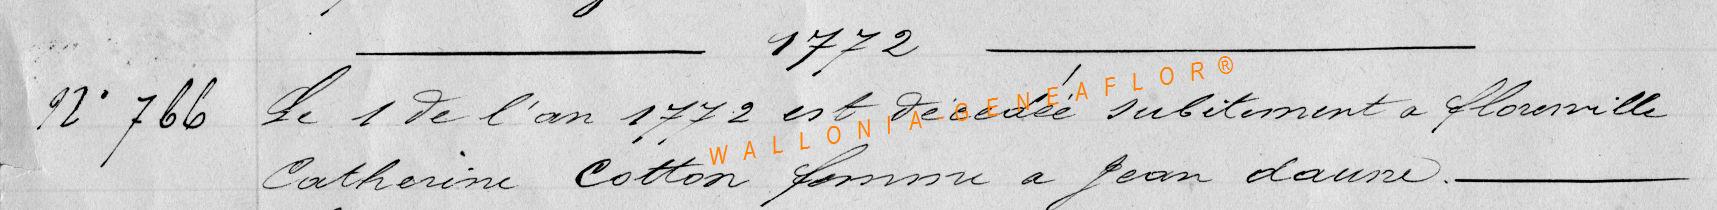 1772
N° 766 Le 1 de l'an 1772 est décédée subitement a florenville
Catherine Cotton femme a Jean daune.
WALLONIA-GENEAFLOR®